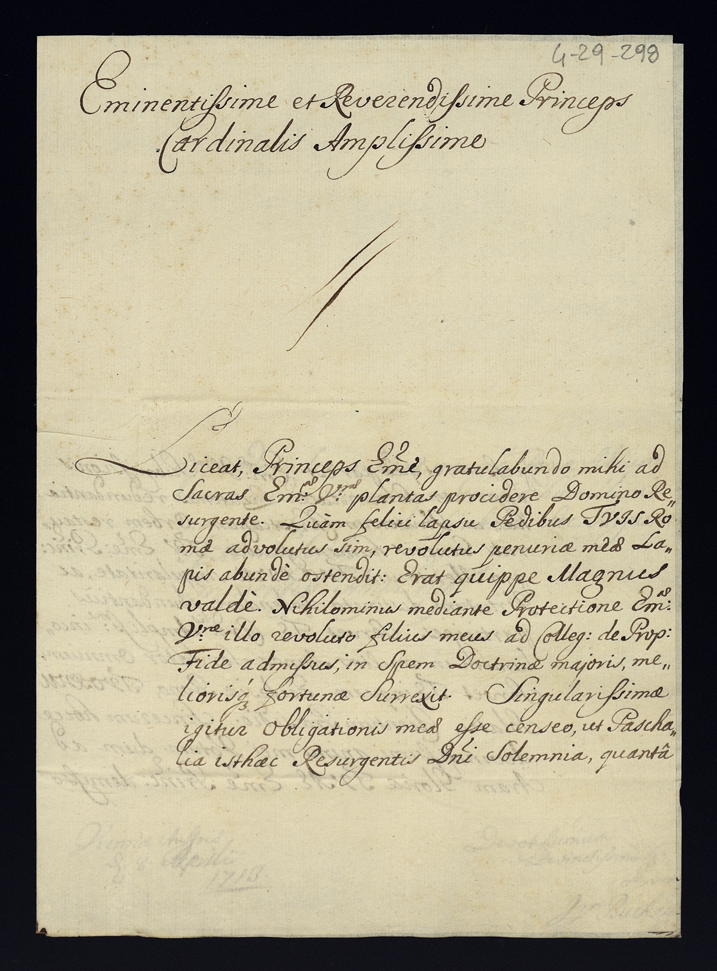 4-29-298
Eminentissime et Reverendissime Princeps
Cardinalis Amplissime
Liceat, Princeps Emẽ, gratulabundo mihi ad
Sacras Emæ Vræ plantas procidere Domino Re„
surgente. Quàm felici lapsu Pedibus TVIS Ro
mæ advolutus sim, revolutus penuriæ meæ La„
pis abundè ostendit: Erat quippe Magnus
valdè. Nihilominus mediante Protectione Emæ:
Vræ illo revoluto filius meus ad Colleg: de Prop:
Fide admissus, in Spem Doctrinæ majoris, me„
liorisq₃ fortunæ Surrexit. Singularissimæ
igitur obligationis meæ esse censeo, ut Pascha„
lia isthæc Resurgentis Dñi Solemnia, quantâ
1718.